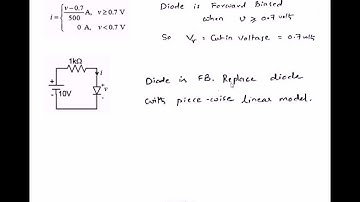 i = { v−0.7 / 500 A, v ≥ 0.7 V
0 A, v < 0.7 V
Diode is Forward Biased
when v ≥ 0.7 volt
So Vr = Cutin Voltage = 0.7 volt
1kΩ
i
+
+
v
-
-
10V
Diode in FB. Replace diode
with piece-wise linear model.